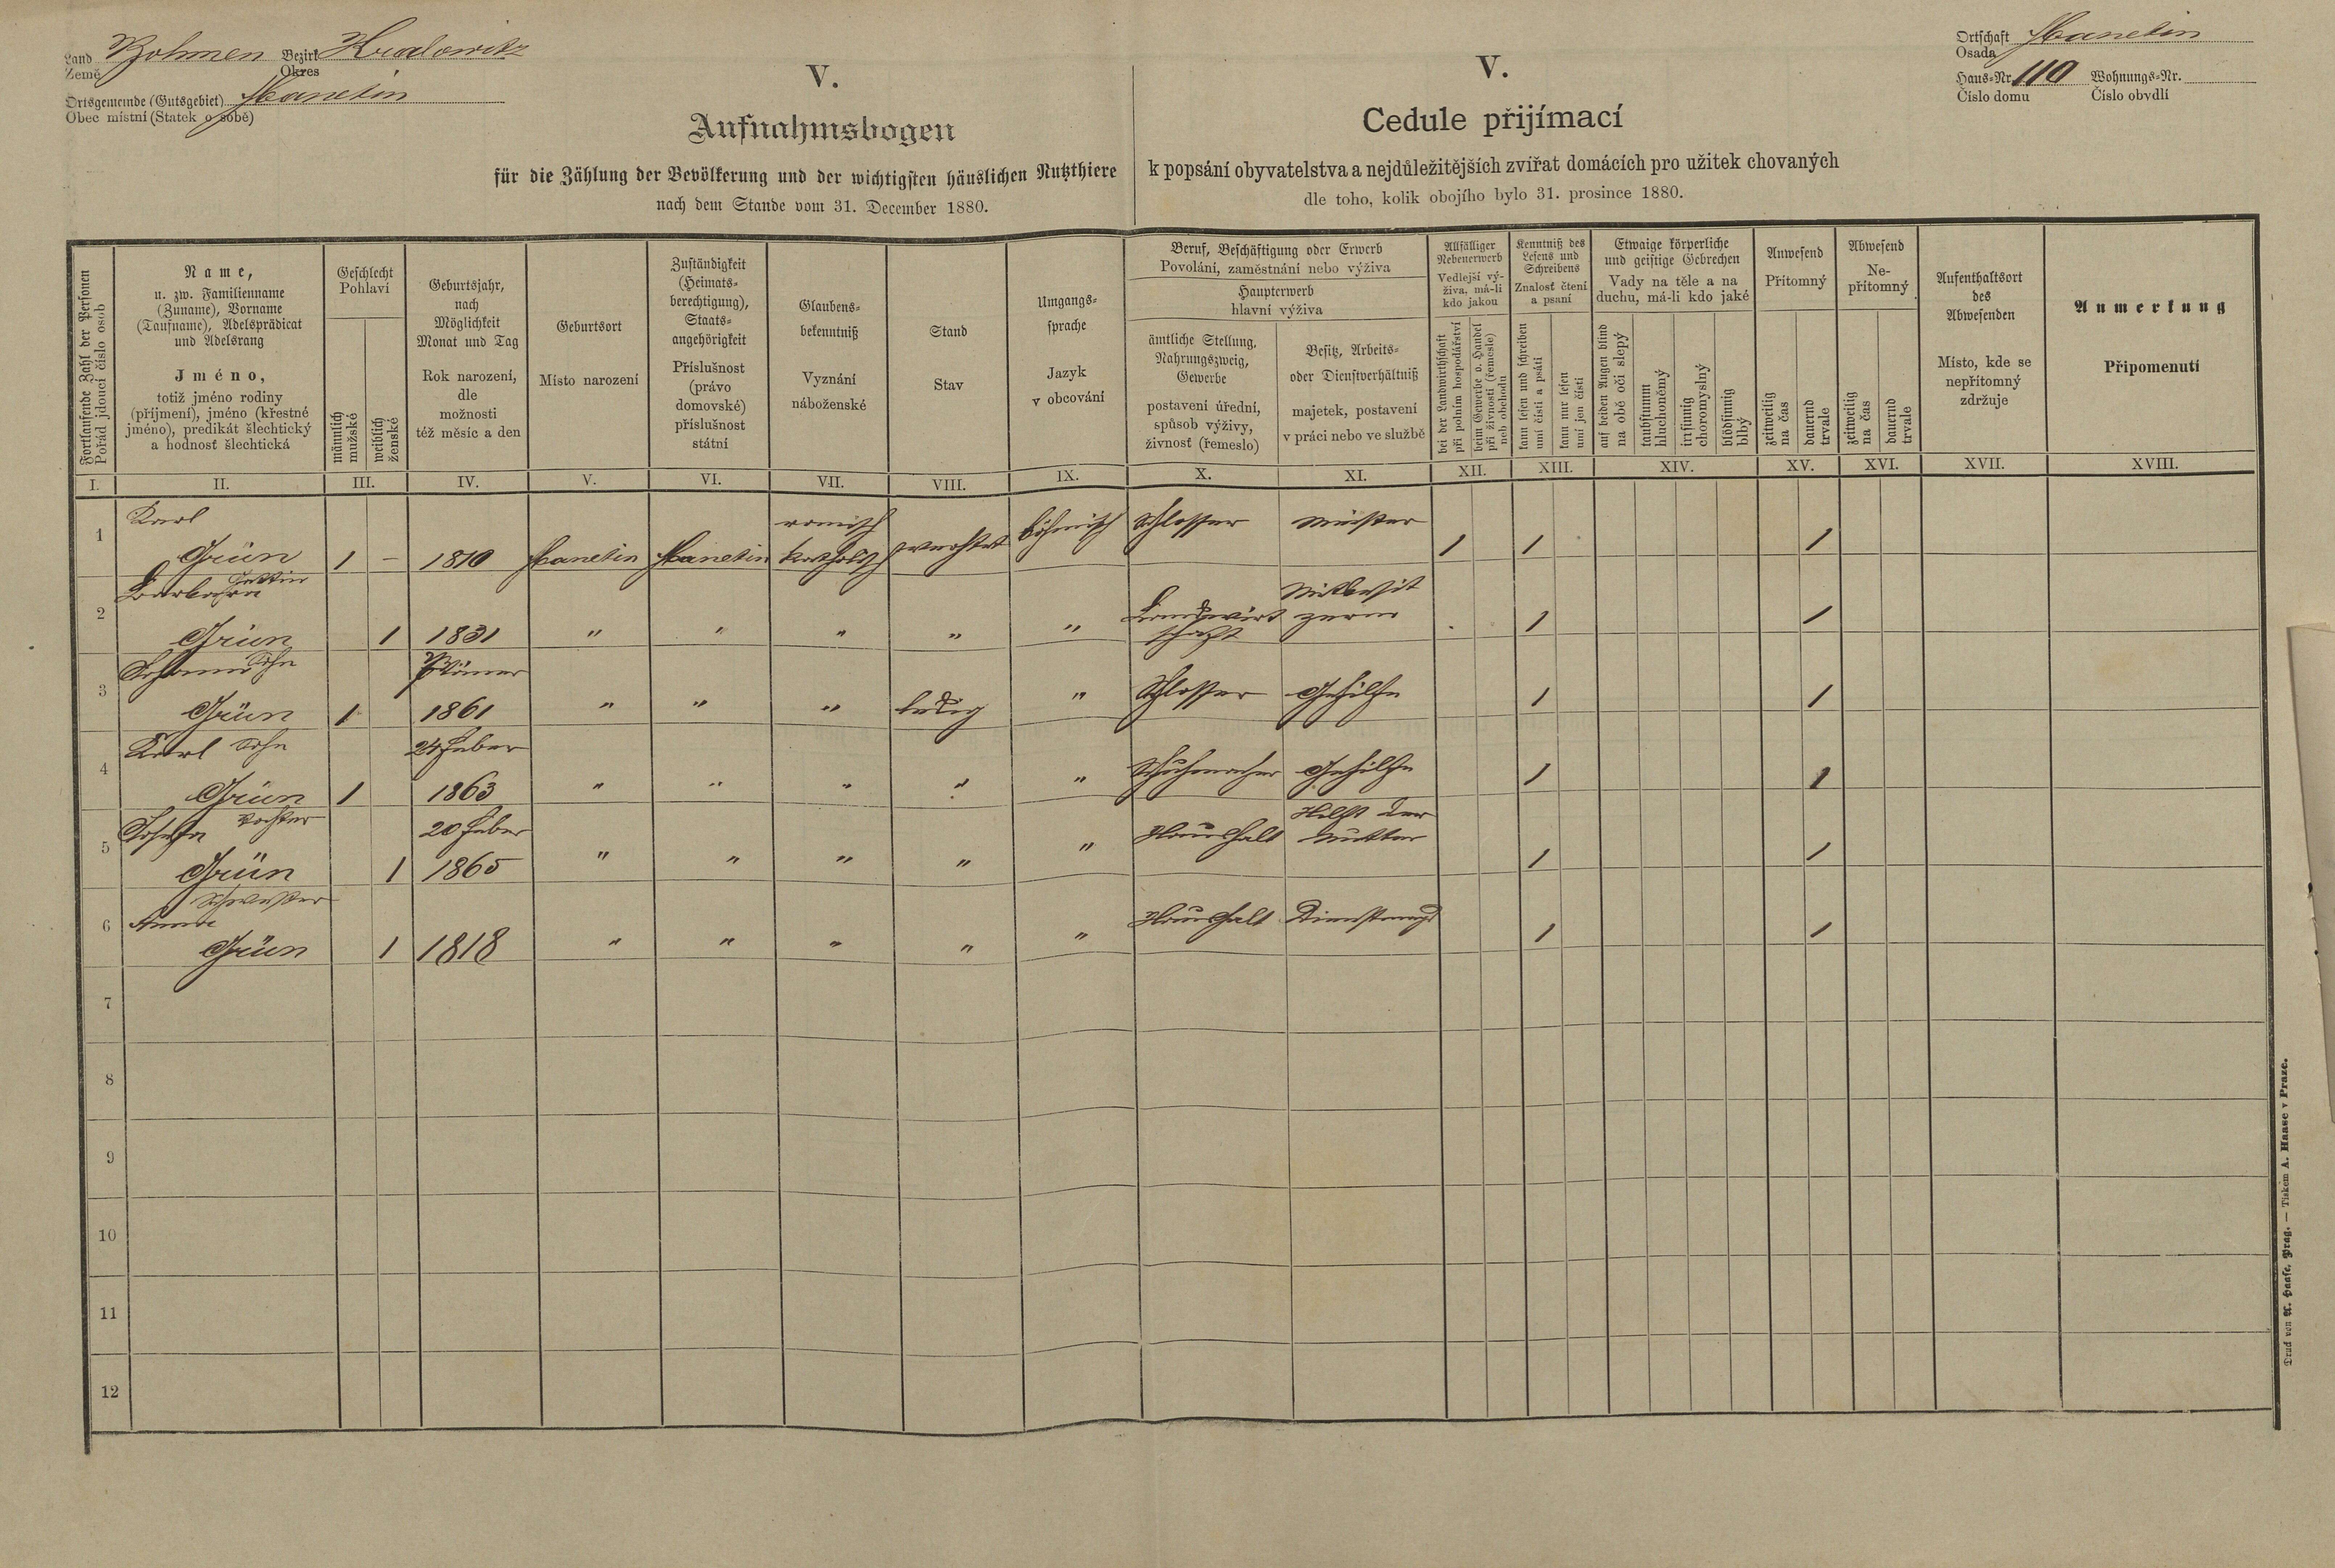 Land Böhmen Bezirk Kralowitz
Země Okres
Ortsgemeinde (Gutsgebiet) Manetin
Obec místní (Statek o sobě)
Ortschaft Manetin
Osada
Haus-Nr. 110 Wohnungs-Nr.
Číslo domu Číslo obydlí
V.
Aufnahmsbogen
für die Zählung der Bevölkerung und der wichtigsten häuslichen Nutzthiere
nach dem Stande vom 31. December 1880.
V.
Cedule přijímací
k popsání obyvatelstva a nejdůležitějších zvířat domácích pro užitek chovaných
dle toho, kolik obojího bylo 31. prosince 1880.
Fortlaufende Zahl der Personen
Pořád jdoucí číslo osob
Name,
u. zw. Familienname
(Zuname), Vorname
(Taufname), Adelsprädicat
und Adelsrang
Jméno,
totiž jméno rodiny
(příjmení), jméno (křestné
jméno), predikát šlechtický
a hodnosť šlechtická
Geschlecht
Pohlaví
männlich
mužské
weiblich
ženské
Geburtsjahr,
nach
Möglichkeit
Monat und Tag
Rok narození,
dle
možnosti
též měsíc a den
Geburtsort
Místo narození
Zuständigkeit
(Heimats-
berechtigung),
Staats-
angehörigkeit
Příslušnost
(právo
domovské)
příslušnost
státní
Glaubens-
bekenntniß
Vyznání
náboženské
Stand
Stav
Umgangs-
sprache
Jazyk
v obcování
Beruf, Beschäftigung oder Erwerb
Povolání, zaměstnání nebo výživa
Haupterwerb
hlavní výživa
ämtliche Stellung,
Nahrungszweig,
Gewerbe
postavení úřední,
spůsob výživy,
živnosť (řemeslo)
Besitz, Arbeits-
oder Dienstverhältniß
majetek, postavení
v práci nebo ve službě
Allfälliger
Nebenerwerb
Vedlejší vý-
živa, má-li
kdo jakou
bei der Landwirthschaft
při polním hospodářství
beim Gewerbe o. Handel
při živnosti (řemesle)
neb obchodu
Kenntniß des
Lesens und
Schreibens
Znalosť čtení
a psaní
kann lesen und schreiben
umí čísti a psáti
kann nur lesen
umí jen čísti
Etwaige körperliche
und geistige Gebrechen
Vady na těle a na
duchu, má-li kdo jaké
auf beiden Augen blind
na obě oči slepý
taubstumm
hluchoněmý
irrsinnig
choromyslný
blödsinnig
blbý
Anwesend
Přítomný
zeitweilig
na čas
dauernd
trvale
Abwesend
Ne-
přítomný
zeitweilig
na čas
dauernd
trvale
Aufenthaltsort
des
Abwesenden
Místo, kde se
nepřítomný
zdržuje
Anmerkung
Připomenutí
I. II. III. IV. V. VI. VII. VIII. IX. X. XI. XII. XIII. XIV. XV. XVI. XVII. XVIII.
1 Karl römisch böhmisch Schlosser Meister
Grün 1 – 1810 Manetin Manetin katholisch 1 1 1
2 Barbara Gattin Mitbesit
Grün 1 1831 " " " " " Landwirt zerin 1 1
schaft
3 Johann Sohn
Grün 1 1861 " " " ledig " Schlosser Gehilfe 1 1
4 Karl Sohn 24 Feber
Grün 1 1863 " " " " " Schuhmacher Gehilfe 1 1
5 Josefa Tochter 20 Feber Hilft der
Grün 1 1865 " " " " " Haushalt Mutter 1 1
6 Schwester
Anna Haushalt Dienstmagd
Grün 1 1818 " " " " " 1 1
7
8
9
10
11
12
Druck von A. Haase, Prag. — Tiskem A. Haase v Praze.